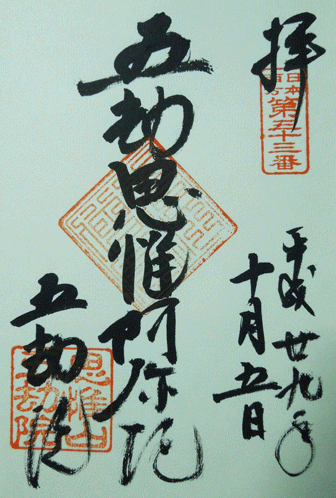 拝
日本
第五十三番
平成廿九年
十月五日
五劫思惟阿弥陀
五劫院
思惟山
五劫院